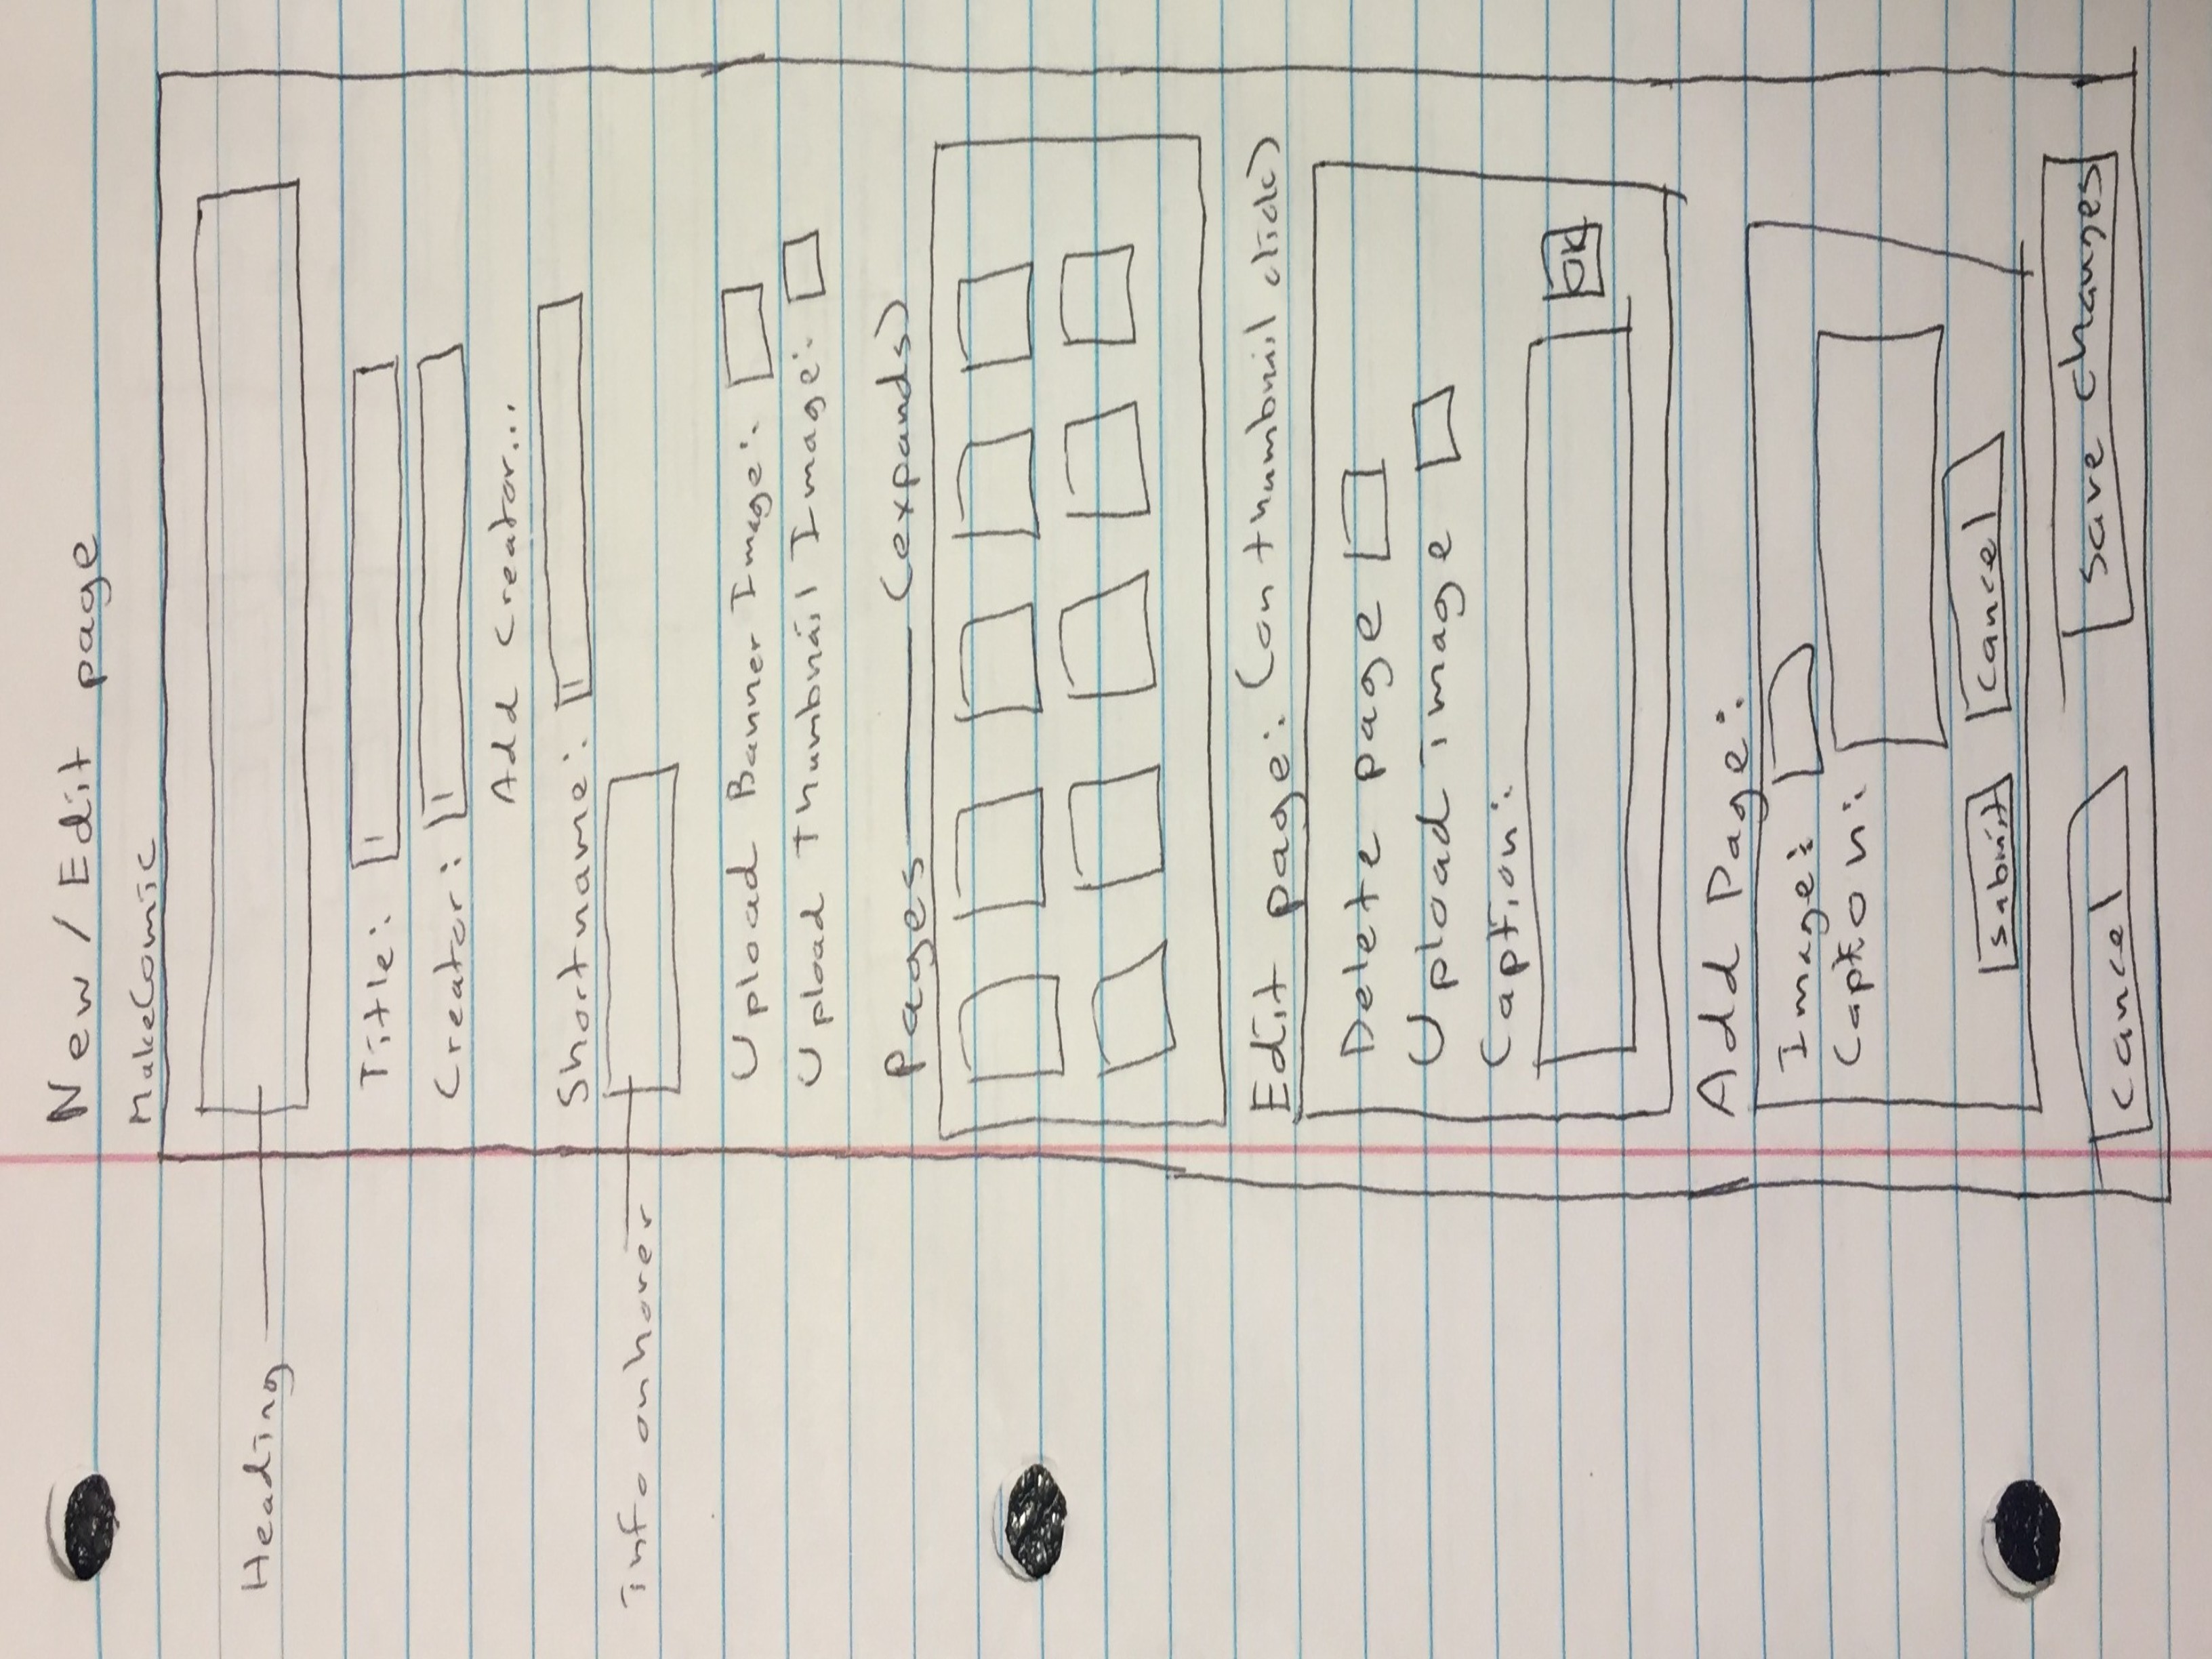 New / Edit page
MakeComic
Heading
Title:
Creator:
Add Creator...
Shortname:
info on hover
Upload Banner Image:
Upload Thumbnail Image:
Pages (expands)
Edit page: (on thumbnail click)
Delete page
Upload image
Caption:
OK
Add Page:
Image:
Caption:
Submit Cancel
Cancel Save Changes